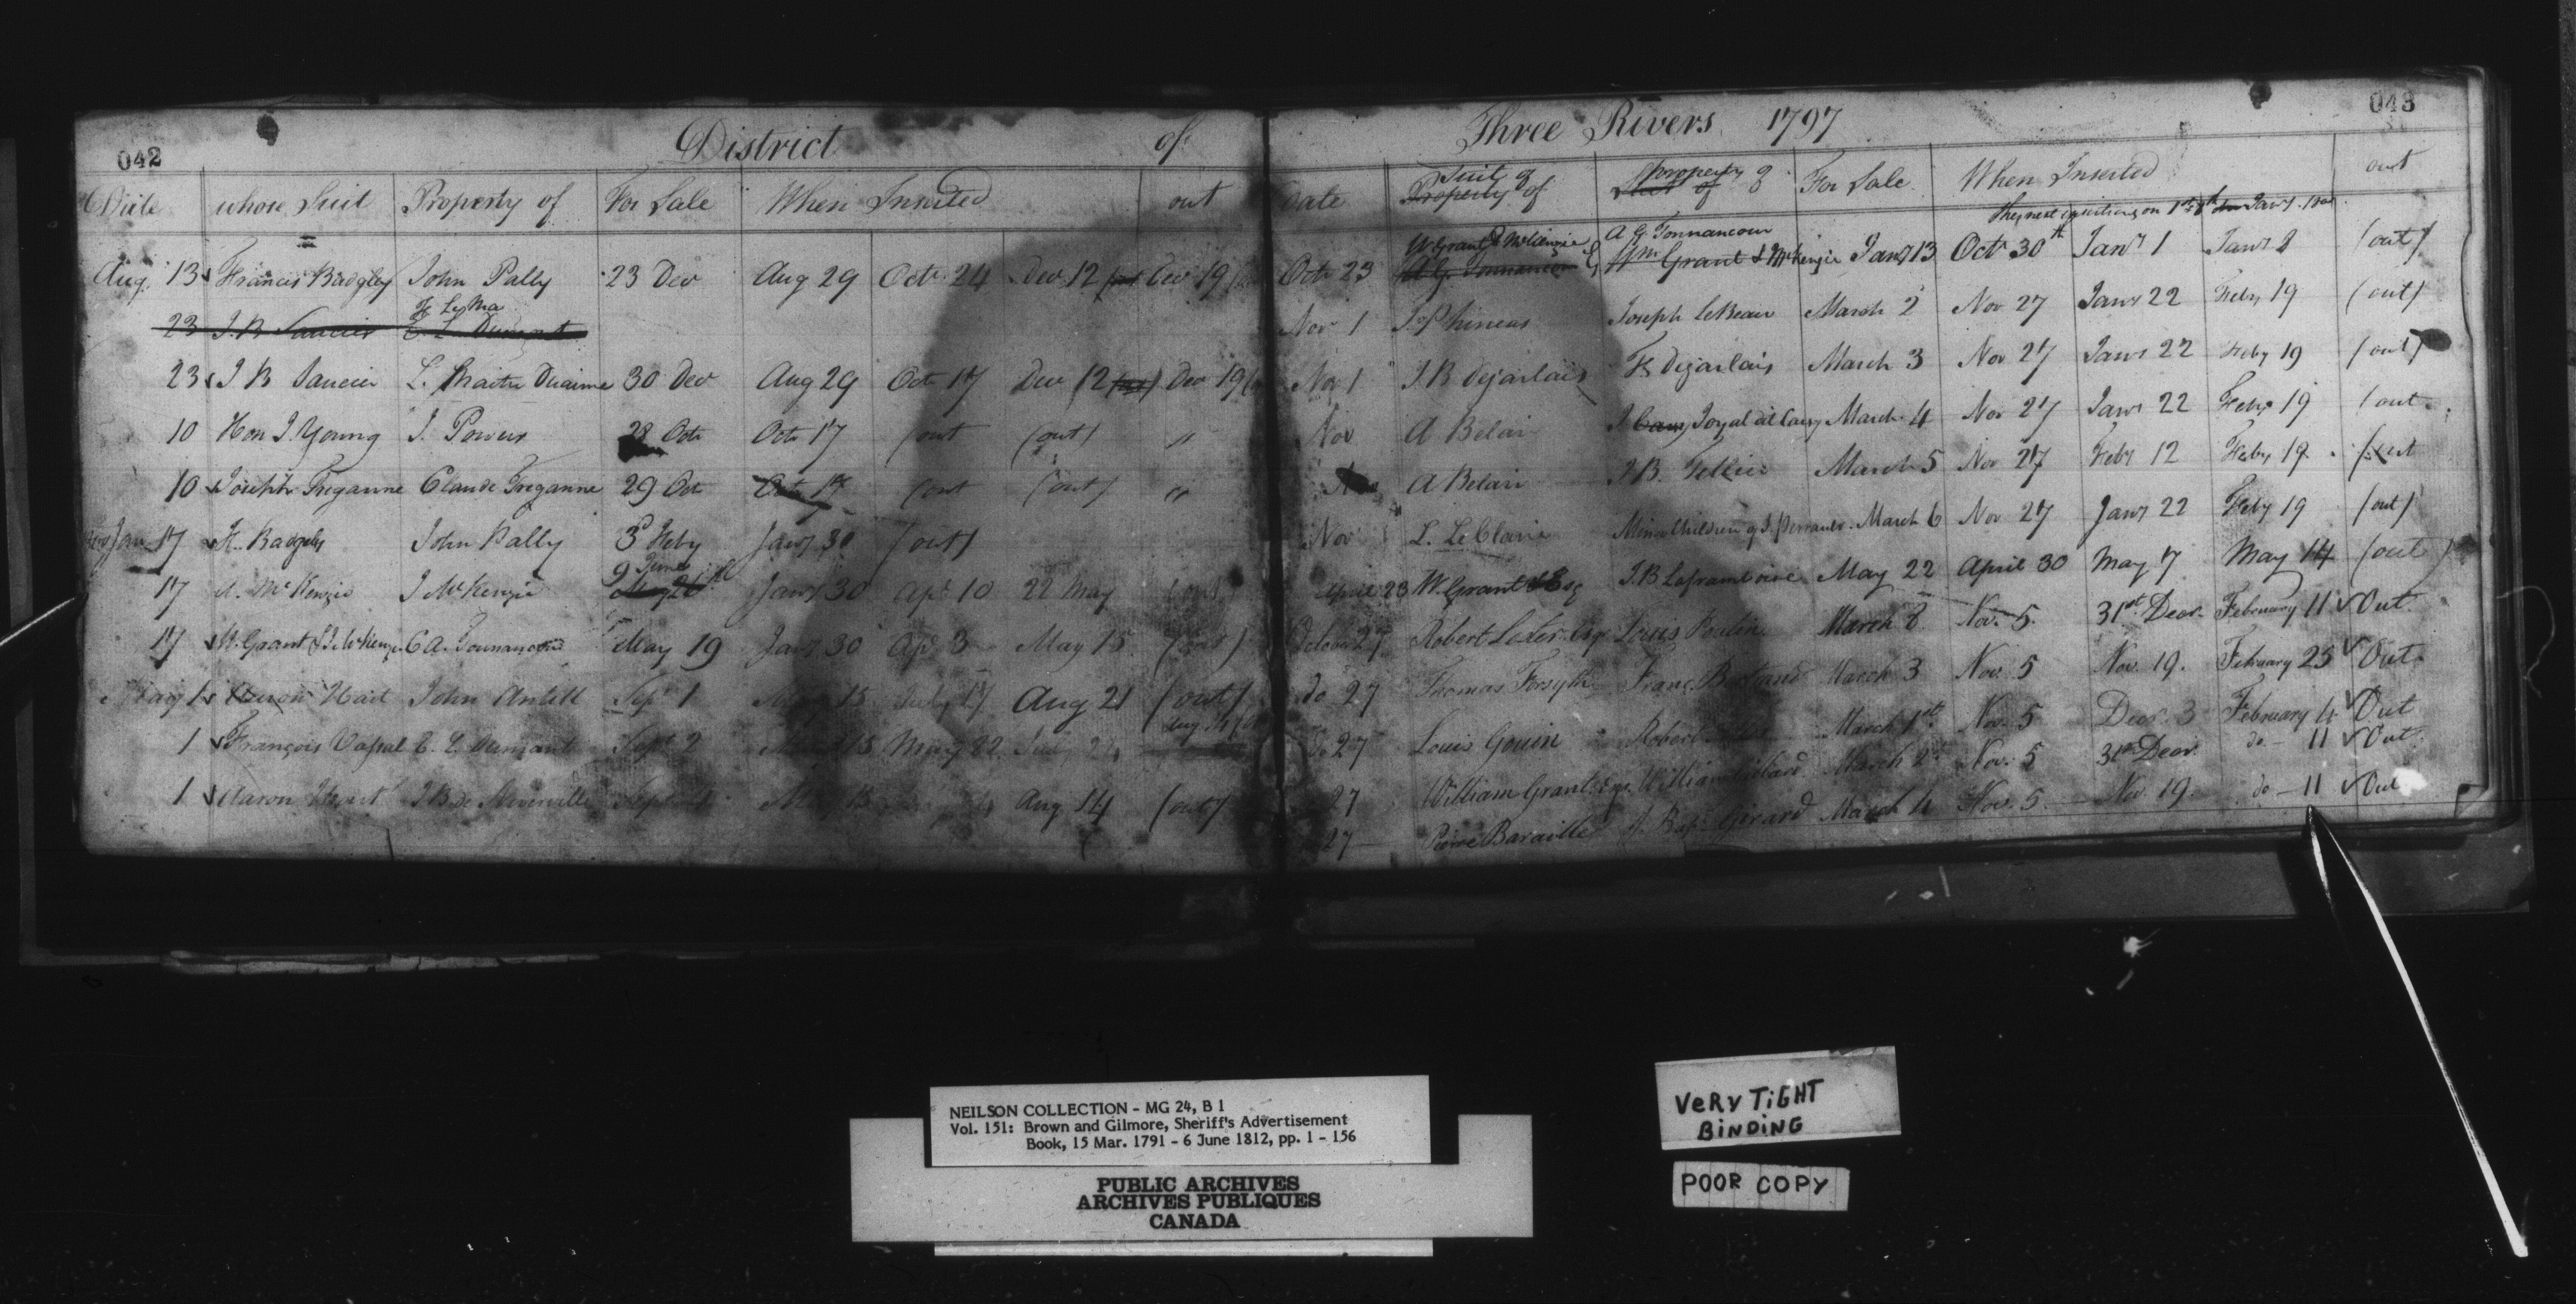 042
District of
Date whose Suit Property of For Sale When Inserted out
Aug. 13 Francis Badgley John Pally 23 Dec Aug 29 Octr. 24 Dec 12 Dec 19
23 J.B Saucier
23 J B Saucier L. Maitre Duaime 30 Dec Aug 29 Oct 17 Dec 12 Dec 19
10 Hon J. Young J. Power 28 Octr Octr 17 (out (out) "
10 Joseph Treganne Claude Treganne 29 Oct Octr 17 (out (out) "
Jan 17 Badgley John Pally 3d Feby Jany 30 (out)
9 June
17 McKenzie J McKenzie Jany 30 Apr 10 22 May (out)
17 W. Grant & J. McKenzie C A. Tonnancour May 19 Jany 30 Apr 3 May 15 (out)
May 1 Aaron Hart John Antill Sepr 1 May 15 July 17 Aug 21 (out)
1 François Vassal Sepr 2 May 15 May 22
1 Aaron Hart J.B de Niverville Aug 14 (out)
043
Three Rivers 1797
Suit of Property of
Date Property of Suit of For Sale When Inserted out
W Grant & McKenzie A G Tonnancour
Octr 23 A G. Tonnancour Wm Grant & McKenzie Jany 13 Oct. 30th Jany 1 Jany 8 (out)
Nov 1 J. Phineas Joseph LeBeau March 2 Nov 27 Jany 22 Feby 19 (out)
Nov 1 J.B dejarlais Fs dejarlais March 3 Nov 27 Jany 22 Feby 19 (out)
Nov A Belair Joyal dit March 4 Nov 27 Jany 22 Feby 19 (out
A Belair J.B. Tellier March 5 Nov 27 Feby 12 Feby 19 (out
Nov L. LeClaire Minor Children of J. Perrault March 6 Nov 27 Jany 22 Feby 19 (out)
April 23 W. Grant Esq J.B Laframboise May 22 April 30 May 7 May 14 (out)
October 27 Robert Lester Esqr Louis Poulin March 8 Nov. 5. 31st Decr. February 11 Out.
do 27 Thomas Forsyth Franç. Bertrand March 3 Nov. 5 Nov. 19. February 25 Out.
Do 27 Louis Gouin Robert March 1st Nov. 5 Decr. 3 February 4 Out
27 William Grant Esqr. William March 2d Nov. 5 31st Decr. do — 11 Out.
27 Pierre Baraille J. Bapt. Girard March 4 Nov. 5. Nov. 19. do — 11 Out
NEILSON COLLECTION - MG 24, B 1
Vol. 151: Brown and Gilmore, Sheriff's Advertisement
Book, 15 Mar. 1791 - 6 June 1812, pp. 1 - 156
PUBLIC ARCHIVES
ARCHIVES PUBLIQUES
CANADA
VERY TiGHT
BiNDiNG
POOR COPY